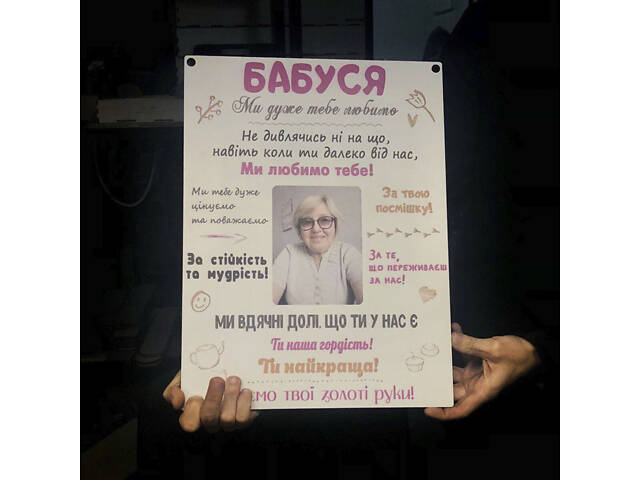 БАБУСЯ
Ми дуже тебе любимо
Не дивлячись ні на що,
навіть коли ти далеко від нас,
Ми любимо тебе!
Ми тебе дуже
цінуємо
та поважаємо
За твою
посмішку!
За стійкість
та мудрість!
За те,
що переживаєш
за нас!
МИ ВДЯЧНІ ДОЛІ, ЩО ТИ У НАС Є
Ти наша гордість!
Ти найкраща!
твої золоті руки!